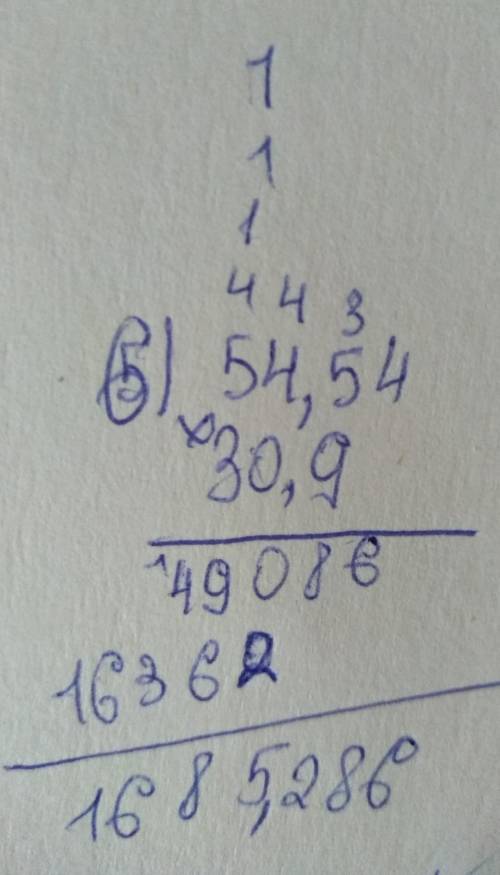 1
1
1
4 4 3
б) 54,54
×30,9
49086
16362
1685,286